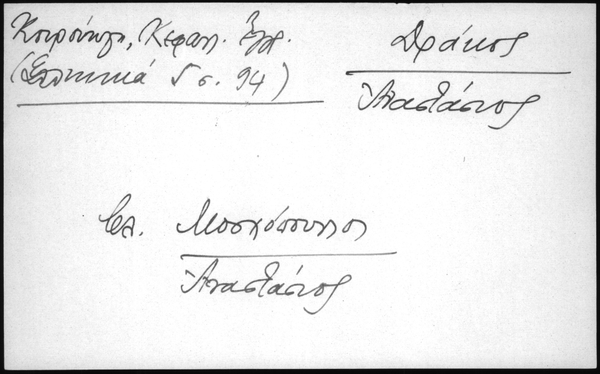 Κουρούκλη, Κεφαλ. Ἐγγ.
(Ἑλληνικά 5 σ. 94)
Δράκος
Ἀναστάσιος
βλ. Μοσχόπουλος
Ἀναστάσιος